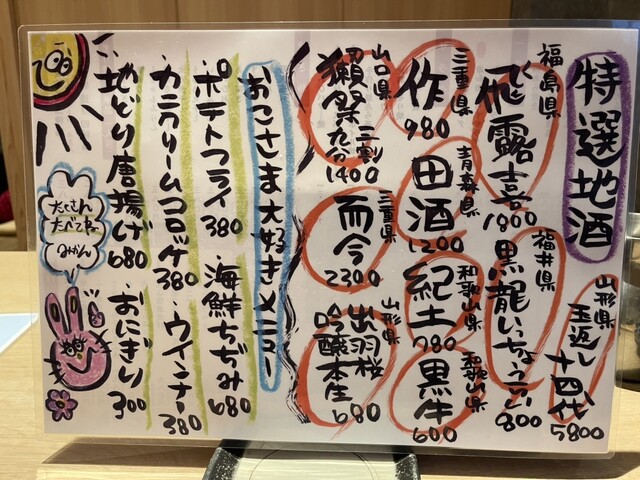 特選地酒
山形県
玉返し
十四代
5800
福島県
飛露喜
1800
福井県
黒龍いっちょうらい
800
三重県
作
980
青森県
田酒
1200
和歌山県
紀土
780
和歌山県
黒牛
600
山口県
獺祭 二割九分
1400
三重県
而今
2300
山形県
出羽桜
吟醸本生
680
おこさま大好きメニュー
・ポテトフライ 380
・海鮮ちぢみ 680
・カニクリームコロッケ 380
・ウインナー 380
・地どり唐揚げ 680
・おにぎり 300
たくさん
たべてね